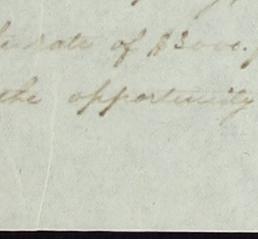 rate of $3000.
the opportunity